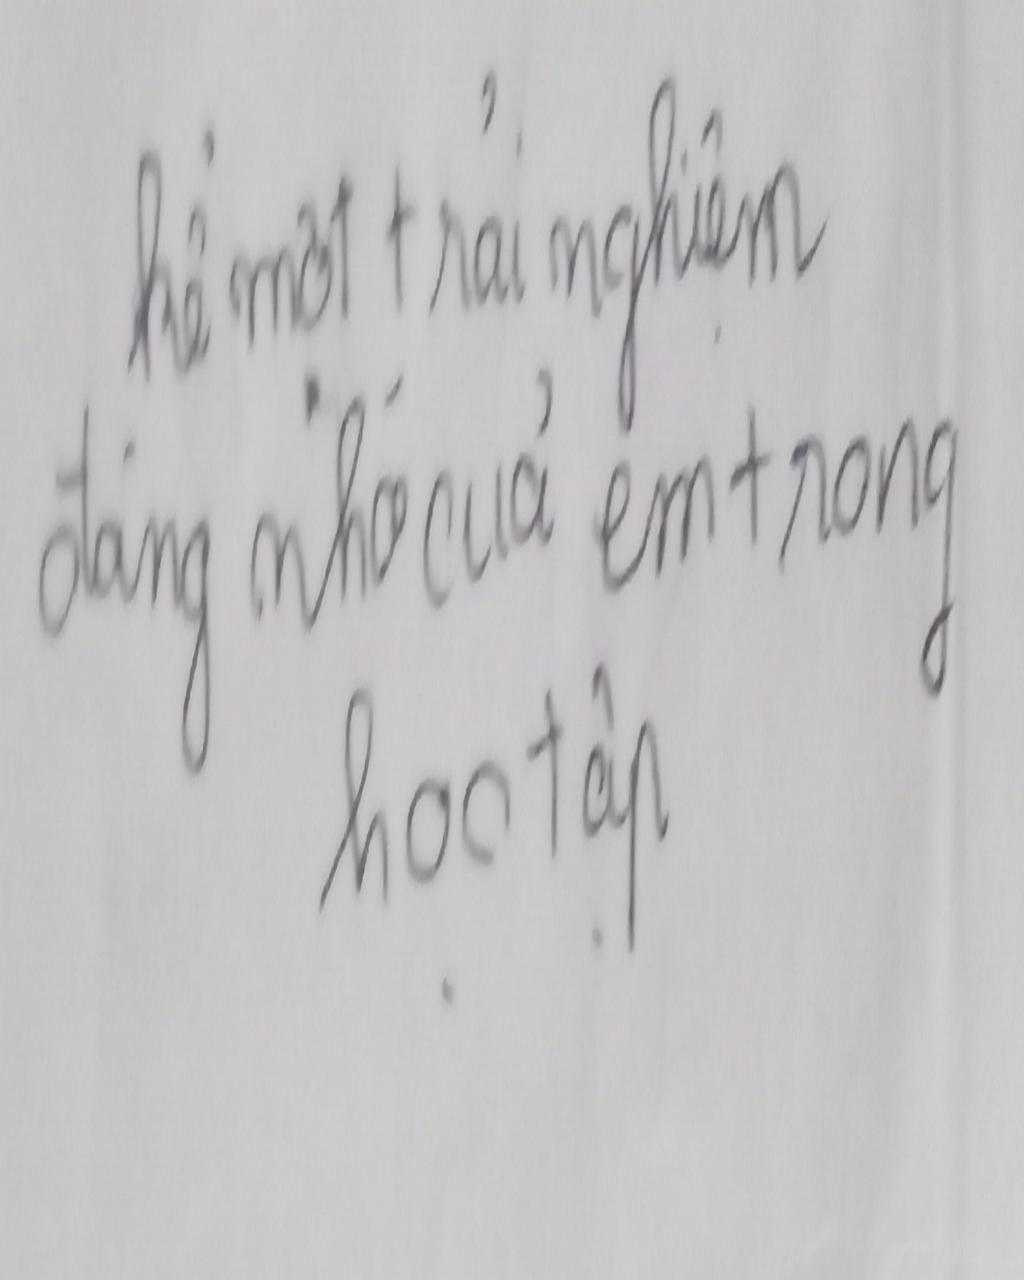 kể một trải nghiệm
đáng nhớ của em trong
học tập